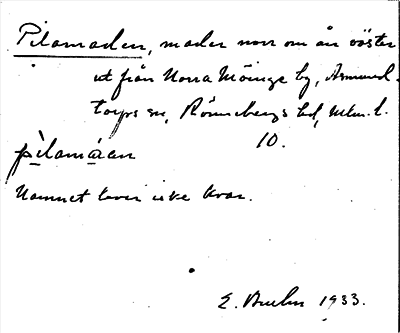 Pilamaden, mader norr om ån väster
ut från Norra Möinge by, Asmund-
torps sn, Rönnebergs hd, Mlm. l.
10.
pìlamáan
Namnet lever icke kvar.
E. Bruhn 1933.